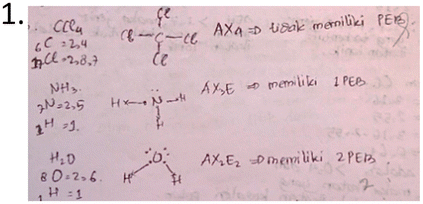 1.
CCl4
6C = 2,4
17Cl = 2,8,7
Cl
Cl - C - Cl
Cl
AX4 => tidak memiliki PEB
NH3
7N = 2,5
1H = 1.
H × N - H
H
AX3E => memiliki 1 PEB
H2O
8 O = 2,6.
1 H = 1
O
H H
AX2E2 => memiliki 2 PEB